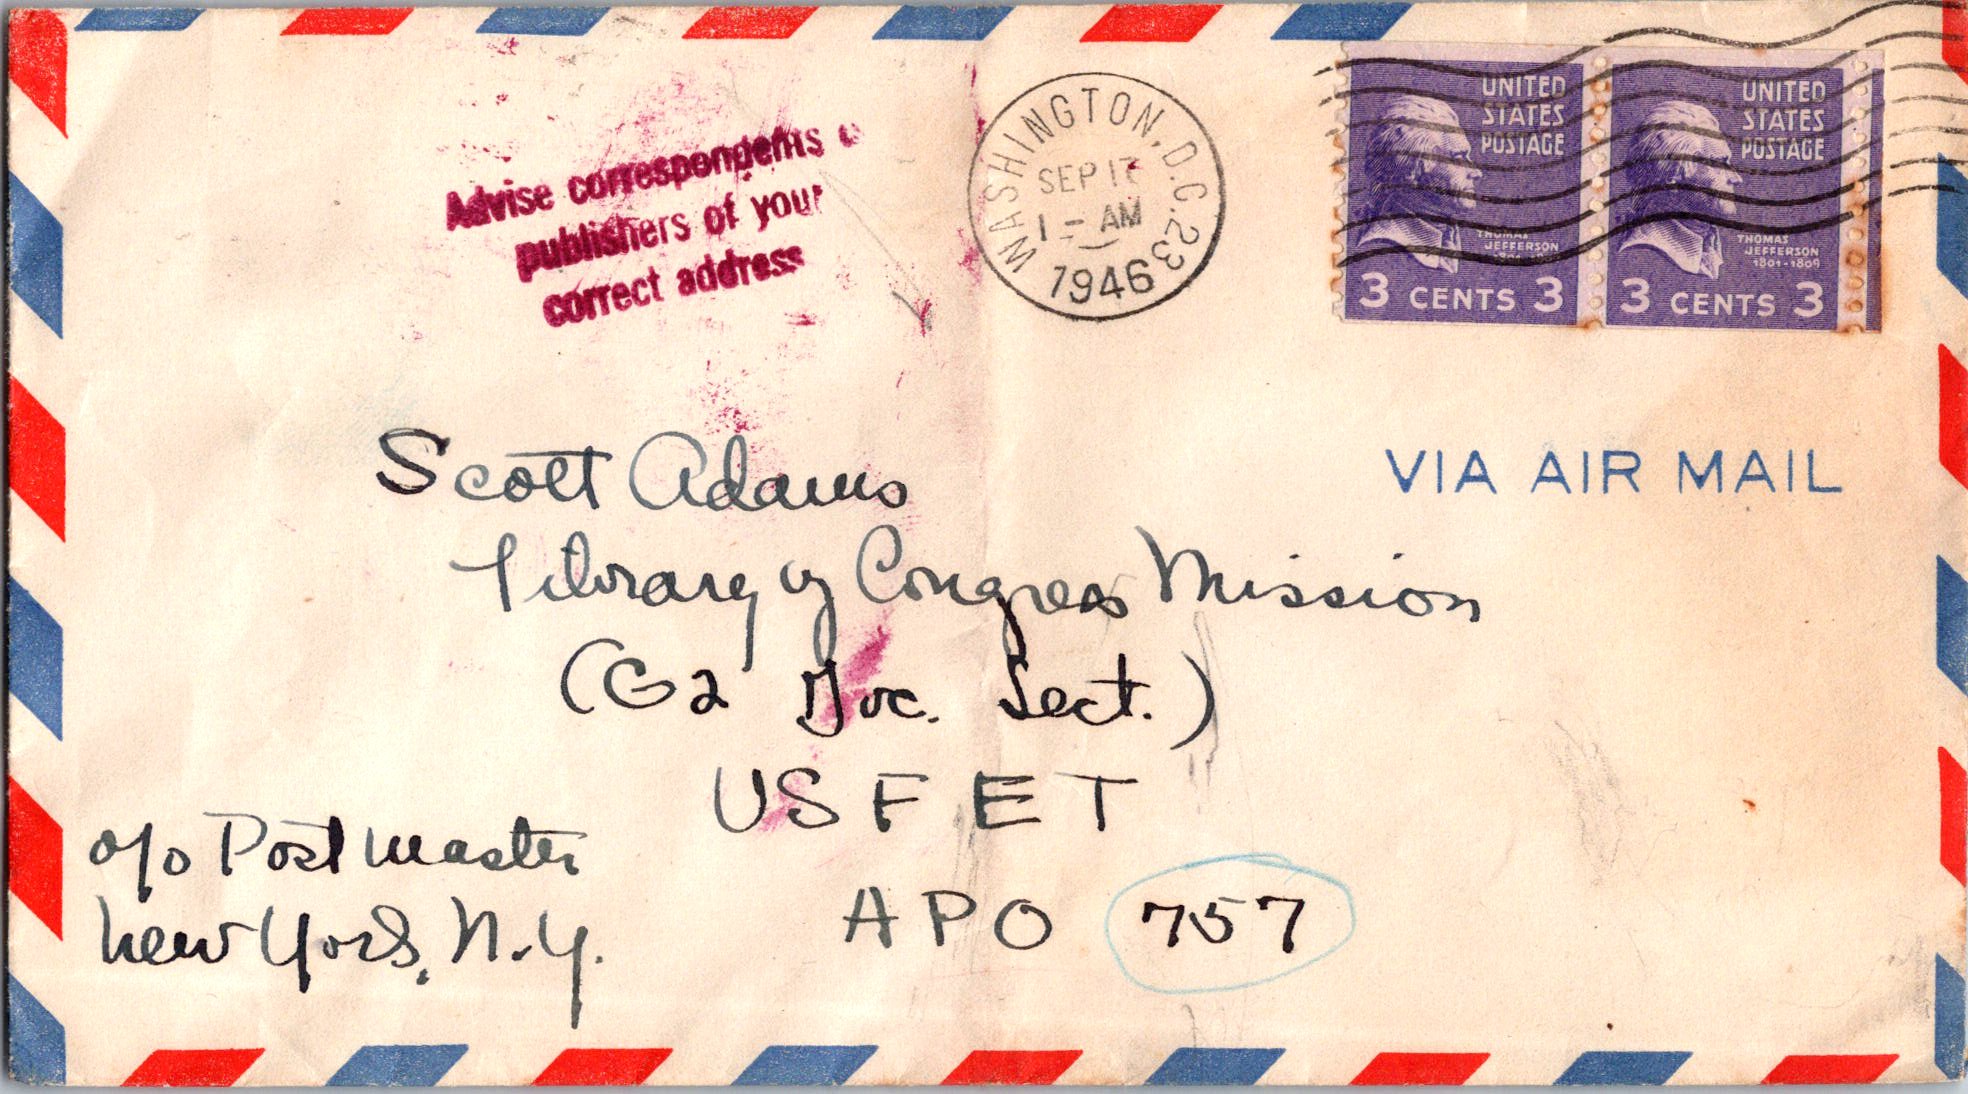 Advise correspondents
publishers of your
correct address
WASHINGTON, D.C. 23
SEP 17
1 - AM
1946
UNITED
STATES
POSTAGE
THOMAS
JEFFERSON
3 CENTS 3
UNITED
STATES
POSTAGE
THOMAS
JEFFERSON
1801-1809
3 CENTS 3
VIA AIR MAIL
Scott Adams
Library of Congress Mission
(G2 Doc. Sect.)
USFET
APO 757
c/o Postmaster
New York, N.Y.